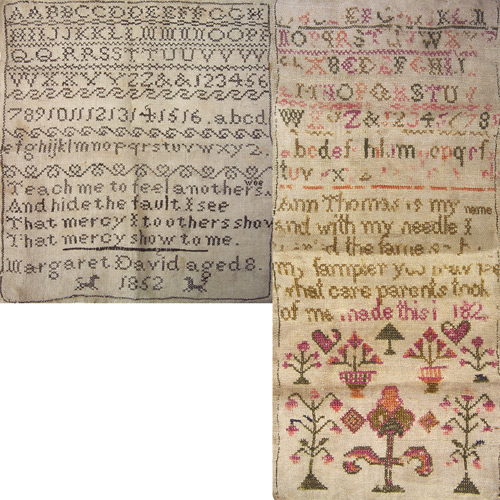 AABBCCDDEEFFGGH
HIIJJKKLLMMNNOOP
QQRRSSTTUUVVWW
WXXYYZZ&&123456
789101112131415 16.abcd
efghijklmnopqrstuvwxyz.
Teach me to feel anothers woe
And hide the fault I see
That mercy I to others show
That mercy show to me.
Margaret David aged 8.
1852
KLM
NOPQRST W
ABC DZFGHI
MNOPQRSTU
W Z&12345 78
bcdef hi lm opqrf
tuv x
Ann Thomas is my name
and with my needle I
the same
my sampler you
what care parents took
of me made this 182